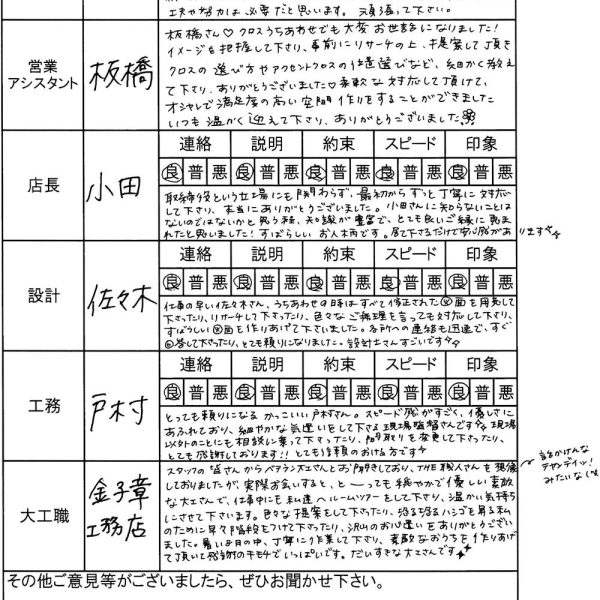 工夫や努力は必要だと思います。頑張って下さい。
営業
アシスタント
板橋
板橋さん♡クロスうちあわせでも大変お世話になりました!
イメージを把握して下さり、事前にリサーチの上、提案して頂き
クロスの選び方やアクセントクロスの位置選びなど、細かく教え
て下さり、ありがとうございました♡柔軟な対応して頂けて、
オシャレで満足度の高い空間作りをすることができました
いつも温かく迎えて下さり、ありがとうございました
店長
小田
連絡 説明 約束 スピード 印象
良 普 悪 良 普 悪 良 普 悪 良 普 悪 良 普 悪
取締役という立場にも関わらず、最初からずっと丁寧に対応
して下さり、本当にありがとうございました。小田さんに知らないことは
ないのではないかと思う程、知識が豊富で、とても良いご縁に恵ま
れたと思いました!すばらしいお人柄です。居て下さるだけで安心感があ
ります
設計
佐々木
連絡 説明 約束 スピード 印象
良 普 悪 良 普 悪 良 普 悪 良 普 悪 良 普 悪
仕事の早い佐々木さん、うちあわせの時はすべて修正された図面を用意して
下さったり、リサーチして下さったり、色々なご無理を言っても対応して下さり、
すばらしい図面を作りあげて下さいました。各所への連絡も迅速で、すぐ
回答して下さったり、とても頼りになりました。設計士さんすごいです
工務
戸村
連絡 説明 約束 スピード 印象
良 普 悪 良 普 悪 良 普 悪 良 普 悪 良 普 悪
とっても頼りになるかっこいい戸村さん。スピード感がすごく、優しさに
あふれており、細やかな気遣いをして下さる現場監督さんです 現場
以外のことにも相談に乗って下さったり、間取りを変更して下さったり、
とても感謝しております!!とても信頼のおける方です
大工職
金子章
工務店
スタッフの皆さんからベテラン大工さんとお聞きしており、職人さんを想像
しておりましたが、実際お会いすると、と――っても穏やかで優しい素敵
な大工さんで、仕事中にも私達へルームツアーをして下さり、温かい気持ち
にさせて下さいます。色々な提案をして下さったり、恐る恐るハシゴを昇る私
のために早々階段をつけて下さったり、沢山のお心遣いをありがとうござい
ました。暑い日の中、丁寧に作業して下さり、素敵なおうちを作りあげ
て頂いて感謝のキモチでいっぱいです。だいすきな大工さんです
てやんでイッ!
みたいな
その他ご意見等がございましたら、ぜひお聞かせ下さい。